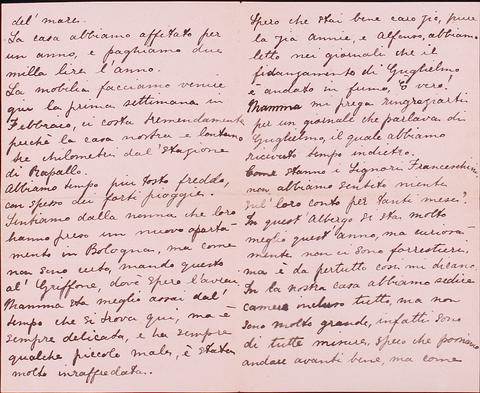 del' mare.
La casa abbiamo affetato per
un anno, e paghiamo due
milla lire l'anno.
La mobilia facciamo venire
qui la prima settimana in
Febbraio, ci costa tremendamente
perchè la casa nostra e lontano
tre chilometri dal' stagione
di Rapallo.
Abbiamo tempo piu tosto freddo,
con spesso dei forti pioggie.
Sentiamo dalla nonna che loro
hanno preso un nuovo aparta-
mento in Bologna, ma come
non sono certo, mando questo
al' Griffone, dove spero l'avrai
Mamma sta meglio assai dal'
tempo che si trova qui, ma è
sempre delicata, e ha sempre
qualche piccolo male, è stata
molto inraffredata..
Spero che stai bene caro zio, pure
la zia Annie, e Alfonso, abbiamo
letto nei giornali che il
fidanzamento di Guglielmo
è andato in fumo, è vero!
Mamma mi prega ringraziarti
per un giornale che parlava di
Guglielmo, il quale abbiamo
ricevuto tempo indietro.
Come stanno i Signori Franceschini,
non abbiamo sentito niente
sul' loro conto per tanti mesi?
In quest' Albergo si sta molto
meglio quest' anno, ma curiosa-
mente non ci sono forrestieri,
ma è da pertutto cosi mi dicano,
In la nostra casa abbiamo sedici
camere incluso tutto, ma non
sono molto grande, infatti sono
di tutte misure, spero che possiamo
andare avanti bene, ma come